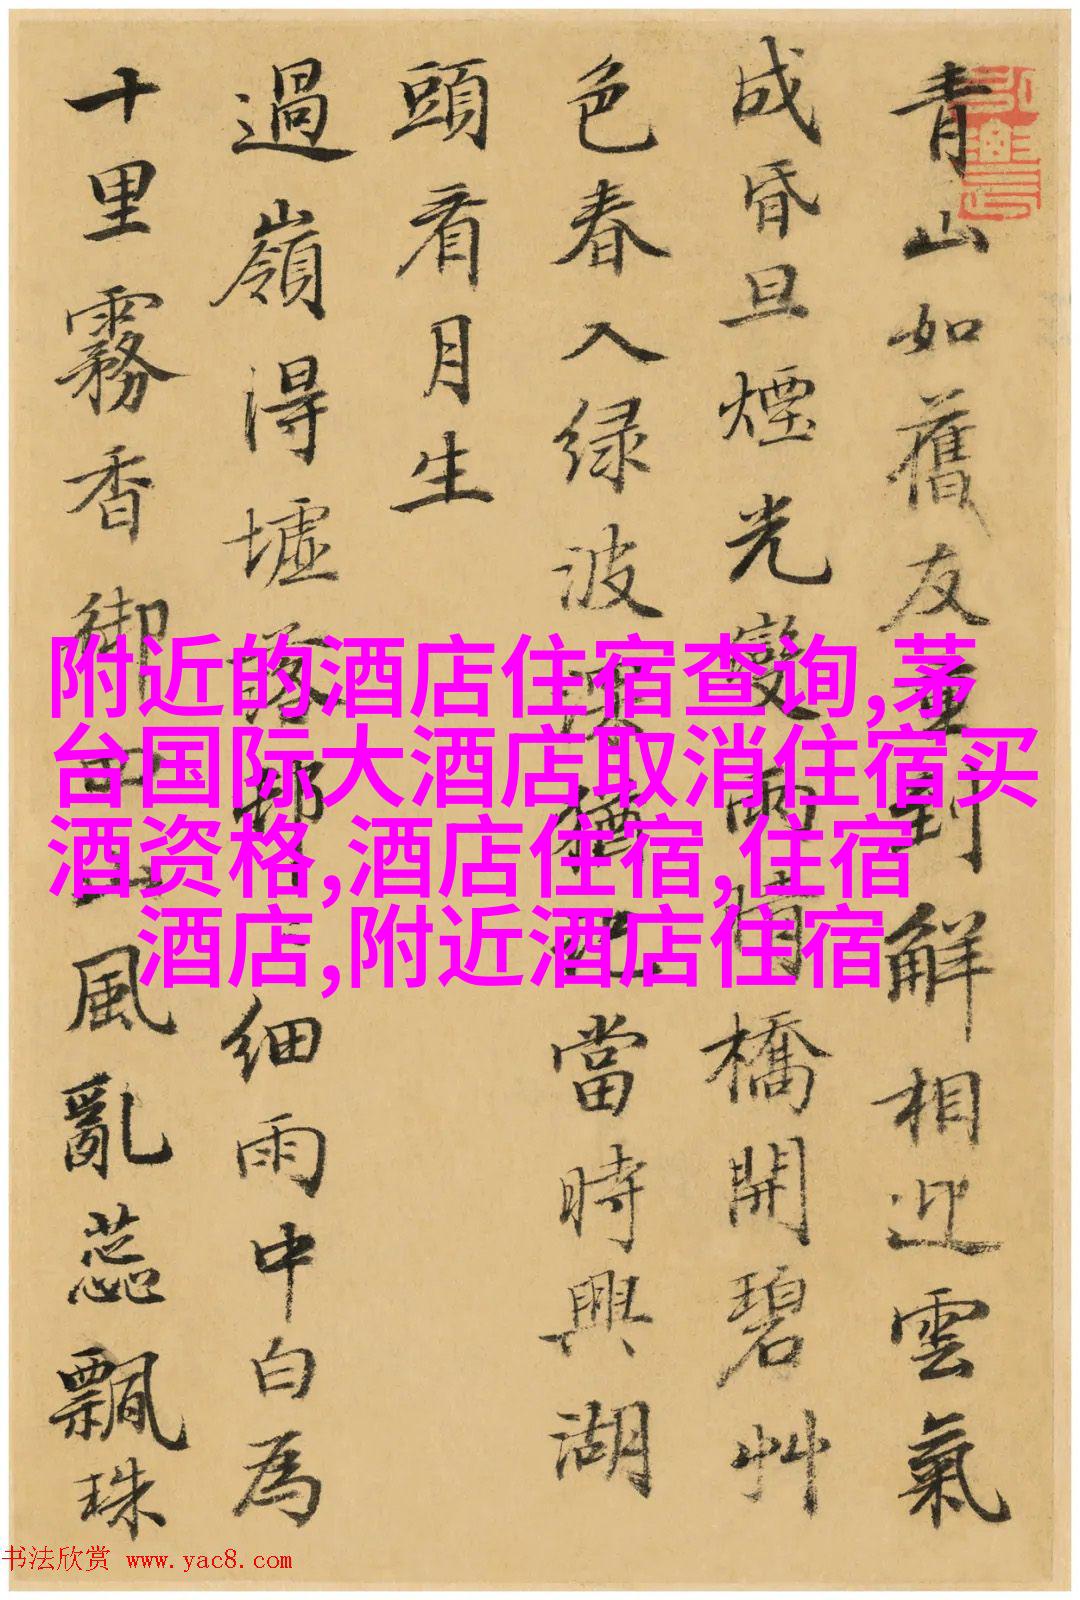 青山如舊友重到解相迎雲氣
成昏旦煙光變雨晴橋開碧艸
色春入绿波猶記當時興湖
頭看月生
過嶺得墟落邨細雨中白為
十里霧香御山風亂蕊飄珠
附近的酒店住宿查询,茅
台国际大酒店取消住宿买
酒资格,酒店住宿,住宿
酒店,附近酒店住宿
书法欣赏 www.yac8.com